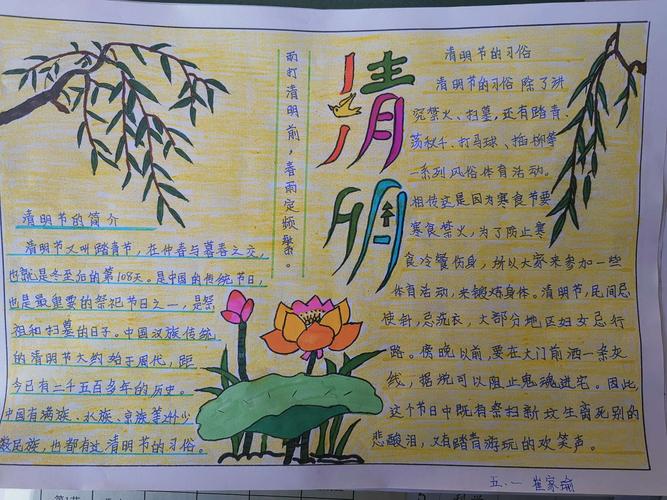 清明
雨打清明前，春雨定频繁。
清明节的简介
清明节又叫踏青节，在仲春与暮春之交，
也就是冬至后的第108天。是中国的传统节日，
也是最重要的祭祀节日之一，是祭
祖和扫墓的日子。中国汉族传统
的清明节大约始于周代，距
今已有二千五百多年的历史。
中国有满族、水族、京族等廾少
数民族，也都有过清明节的习俗。
清明节的习俗
清明节的习俗除了讲
究禁火、扫墓，还有踏青、
荡秋千、打马球、插柳等
一系列风俗体育活动。
相传这是因为寒食节要
寒食禁火，为了防止寒
食冷餐伤身，所以大家来参加一些
体育活动，来锻炼身体。清明节，民间忌
使针，忌洗衣，大部分地区妇女忌行
路。傍晚以前，要在大门前洒一条灰
线，据说可以阻止鬼魂进宅。因此，
这个节日中既有祭扫新坟生离死别的
悲酸泪，又有踏青游玩的欢笑声。
五.一 崔家瑜